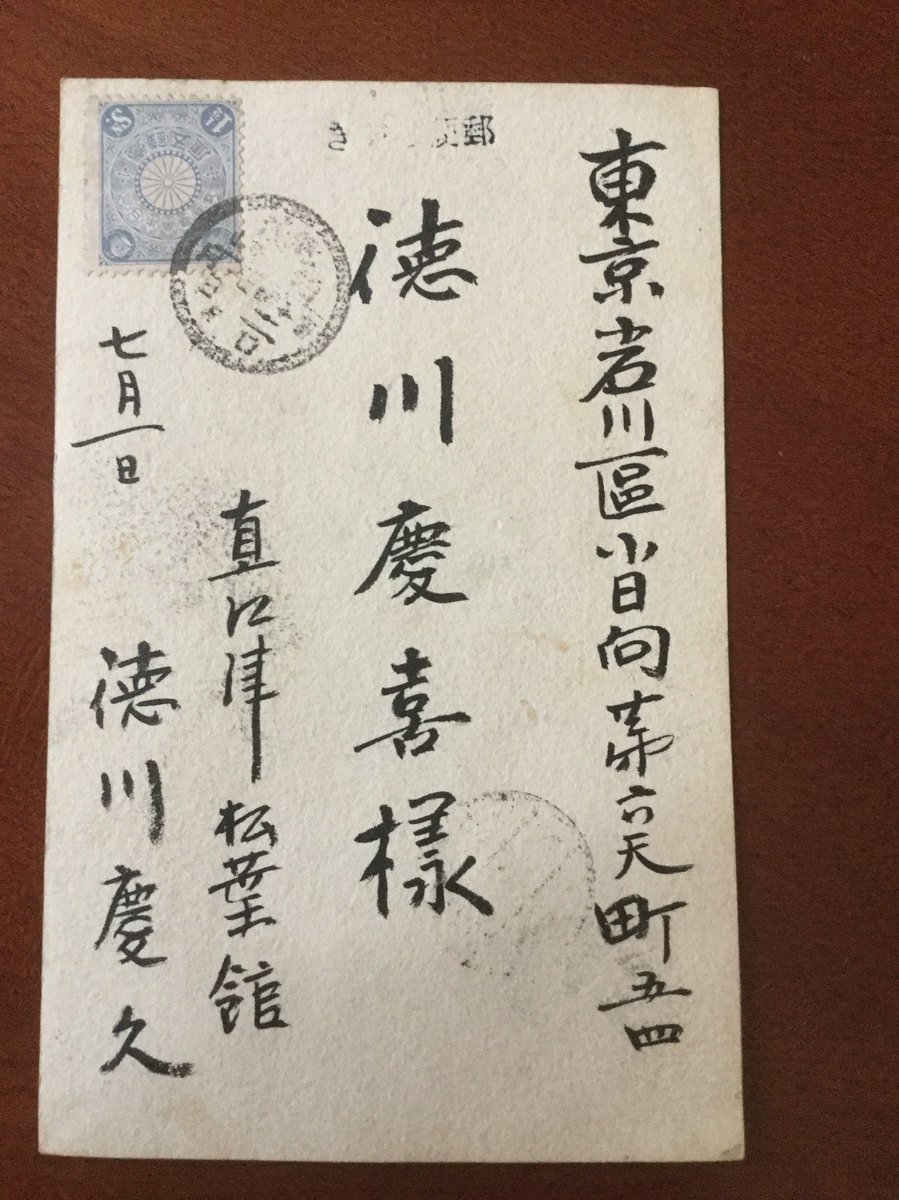 郵便はがき
東京小石川區小日向第六天町五四
徳川慶喜様
直江津松葉館
徳川慶久
七月一日